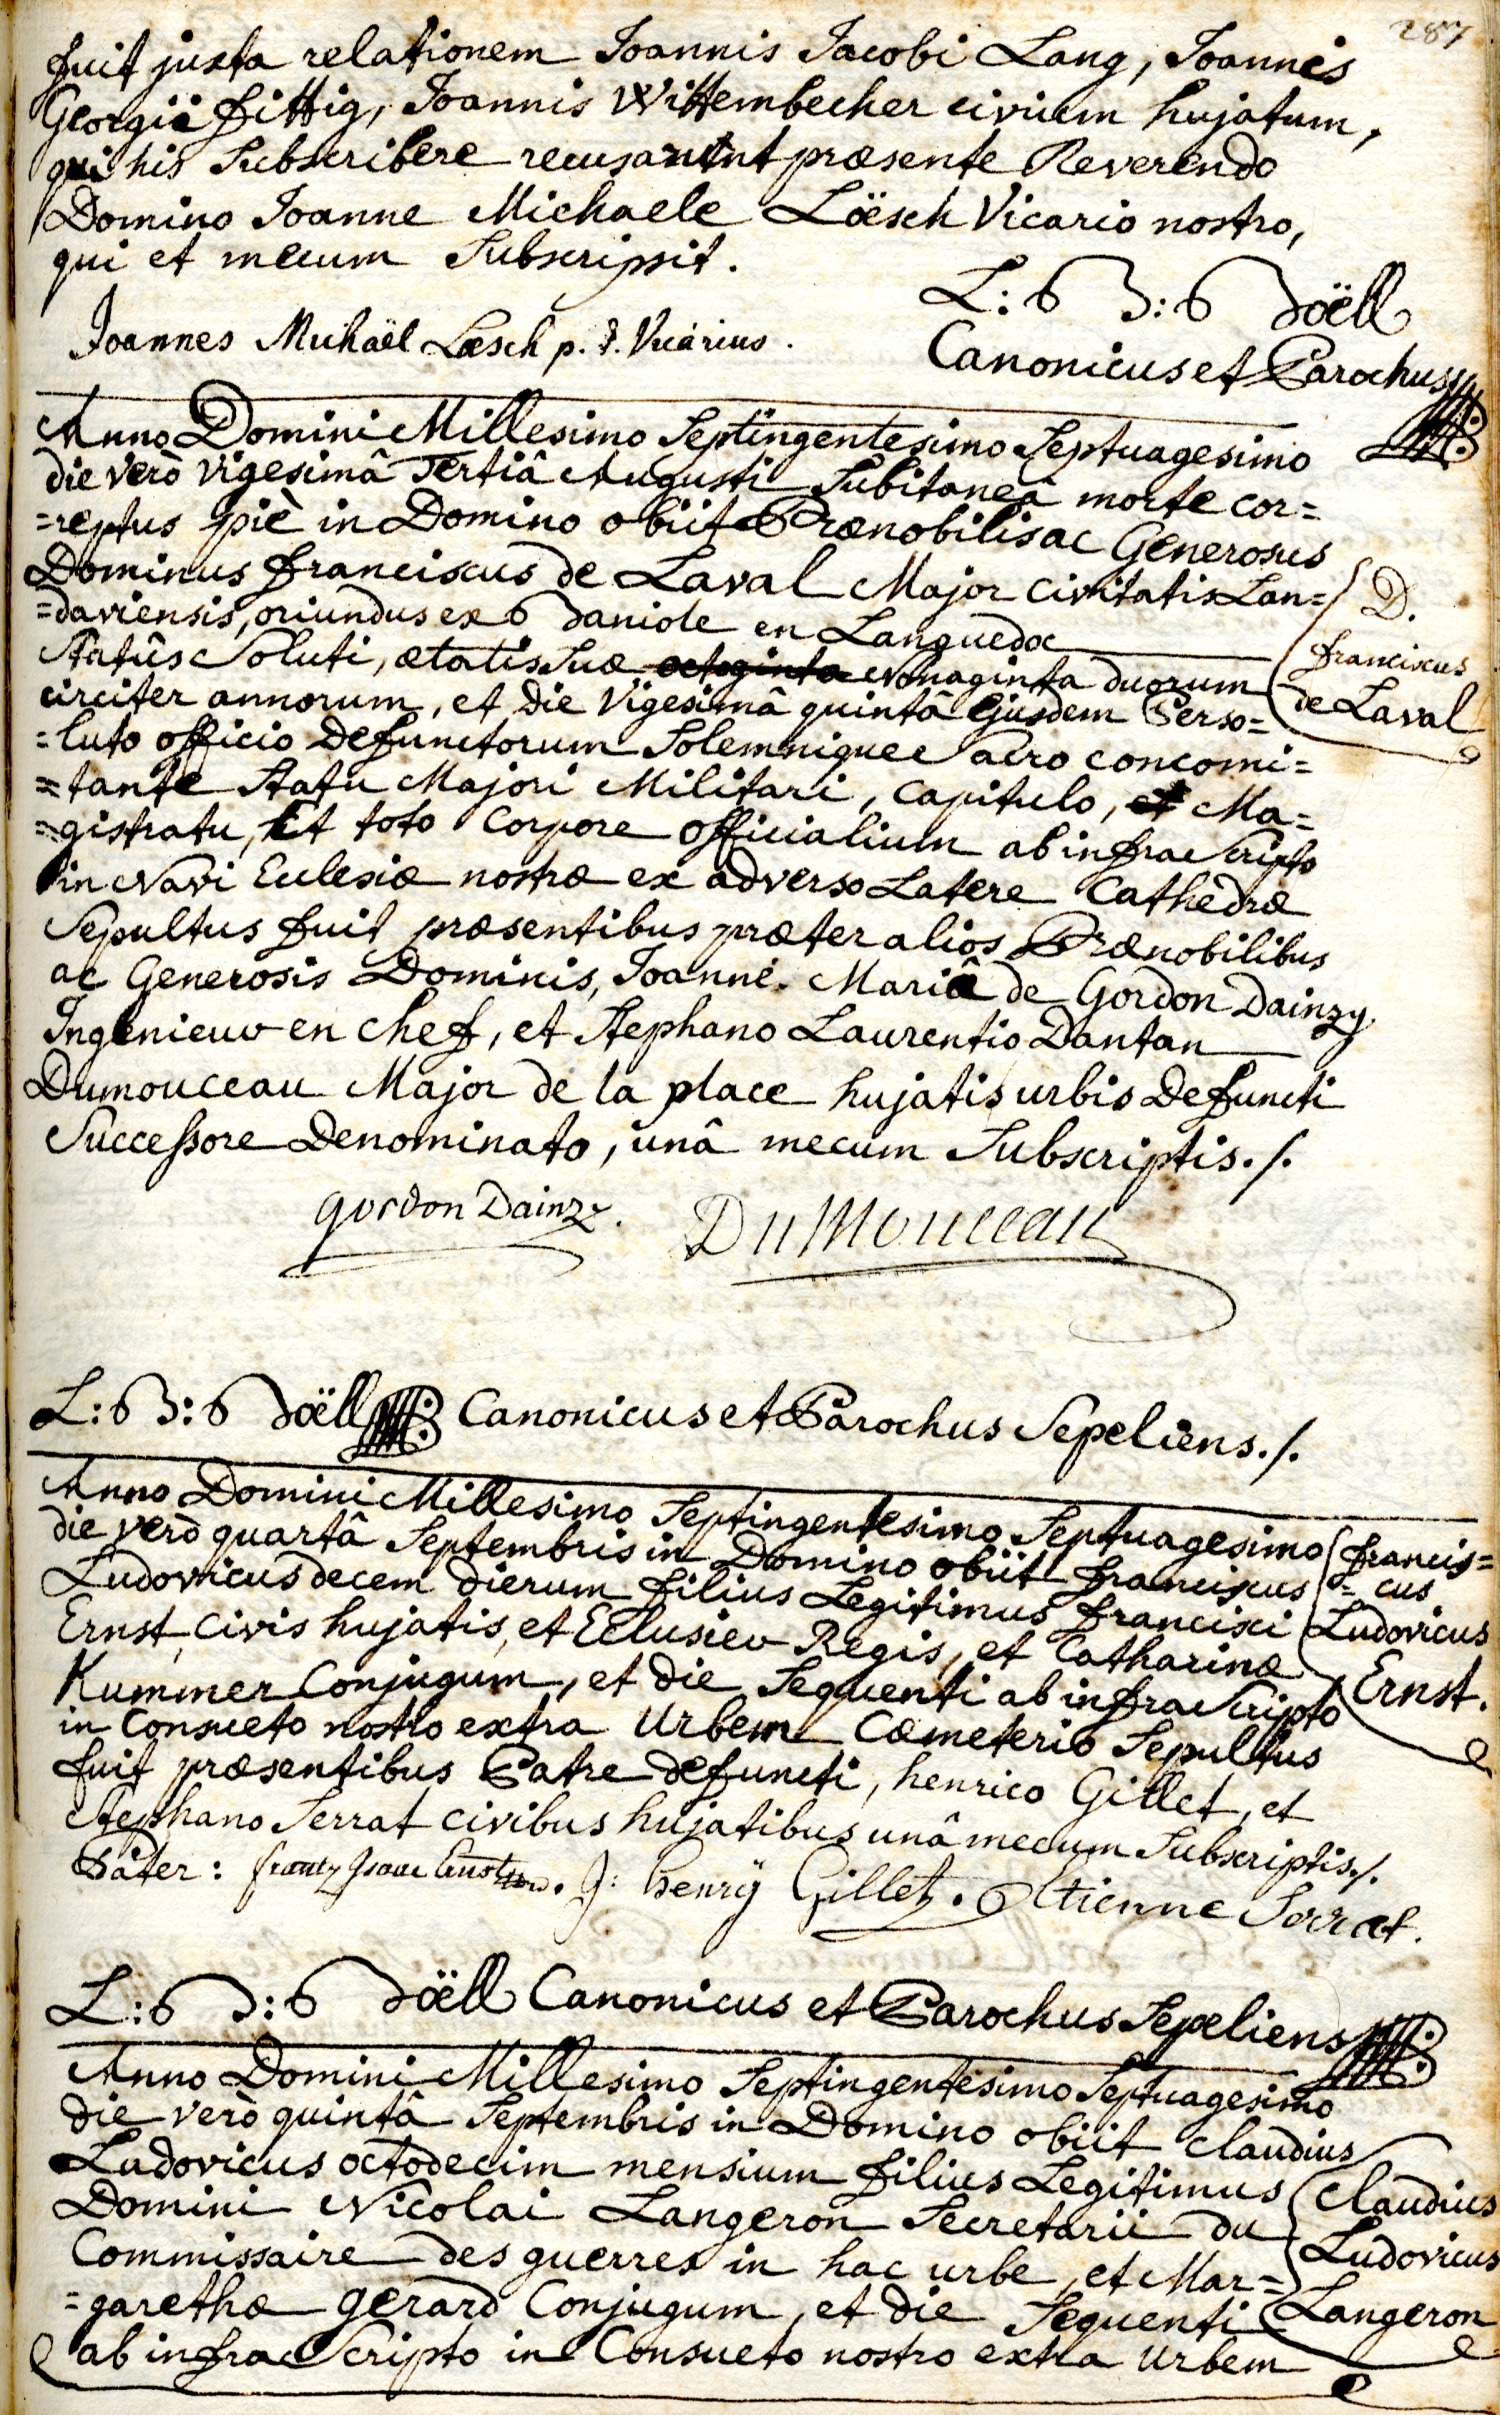 287
fuit juxta relationem Joannis Jacobi Lang, Joannis
Georgii fittig, Joannis Wittembecher civium hujatum,
qui his Subscribere recusarunt præsente Reverendo
Domino Joanne Michaele Löesch Vicario nostro,
qui et mecum Subscripsit.
Joannes Michaël Loesch p. t. Vicarius.
L: B: doëll
Canonicus et Parochus
Anno Domini Millesimo Septingentesimo Septuagesimo
die verò vigesimâ Tertiâ Augusti Subitaneâ morte cor=
=reptus piè in Domino obiit Prænobilis ac Generosus
Dominus franciscus de Laval Major Civitatis Lan=
=daviensis, oriundus ex daniole en Languedoc
Statûs Soluti, ætatis Suæ octoginta Nonaginta duorum
circiter annorum, et die Vigesimâ quintâ Ejusdem Perso=
=luto officio Defunctorum Solemnique Sacro concomi=
=tante Statu Majori Militari, Capitulo, et Ma=
=gistratu, Et toto Corpore officialium ab infra Scripto
in Navi Ecclesiæ nostræ ex adverso Latere Cathedræ
Sepultus fuit præsentibus præter alios Prænobilibus
ac Generosis Dominis, Joanne Mariâ de Gordon Dainzy
Ingenieur en chef, et Stephano Laurentio Dantan
Dumouceau Major de la place hujatis urbis Defuncti
Successore Denominato, unâ mecum Subscriptis./.
D.
franciscus
de Laval
gordon Dainzy.
DuMouceau
L: B: doëll Canonicus et Parochus Sepeliens./.
Anno Domini Millesimo Septingentesimo Septuagesimo
die verò quartâ Septembris in Domino obiit franciscus
Ludovicus decem dierum filius Legitimus francisci
Ernst, Civis hujatis, et Eclusier Regis, et Catharinæ
Kummer Conjugum, et die Sequenti ab infra Scripto
in Consueto nostro extra Urbem Coemeterio Sepultus
fuit præsentibus Patre defuncti, henrico Gillet, et
Stephano Serrat civibus hujatibus unâ mecum Subscriptis./.
francis=
=cus
Ludovicus
Ernst.
Päter: frantz Isaac J: henrÿ Gillet. Etienne Serrat.
L: B: doëll Canonicus et Parochus Sepeliens
Anno Domini Millesimo Septingentesimo Septuagesimo
die verò quintâ Septembris in Domino obiit Claudius
Ludovicus octodecim mensium filius Legitimus
Domini Nicolai Langeron Secretarii du
Commissaire des guerres in hac urbe, et Mar=
=garethæ gerard Conjugum, et die Sequenti
ab infra Scripto in Consueto nostro extra Urbem
Claudius
Ludovicus
Langeron